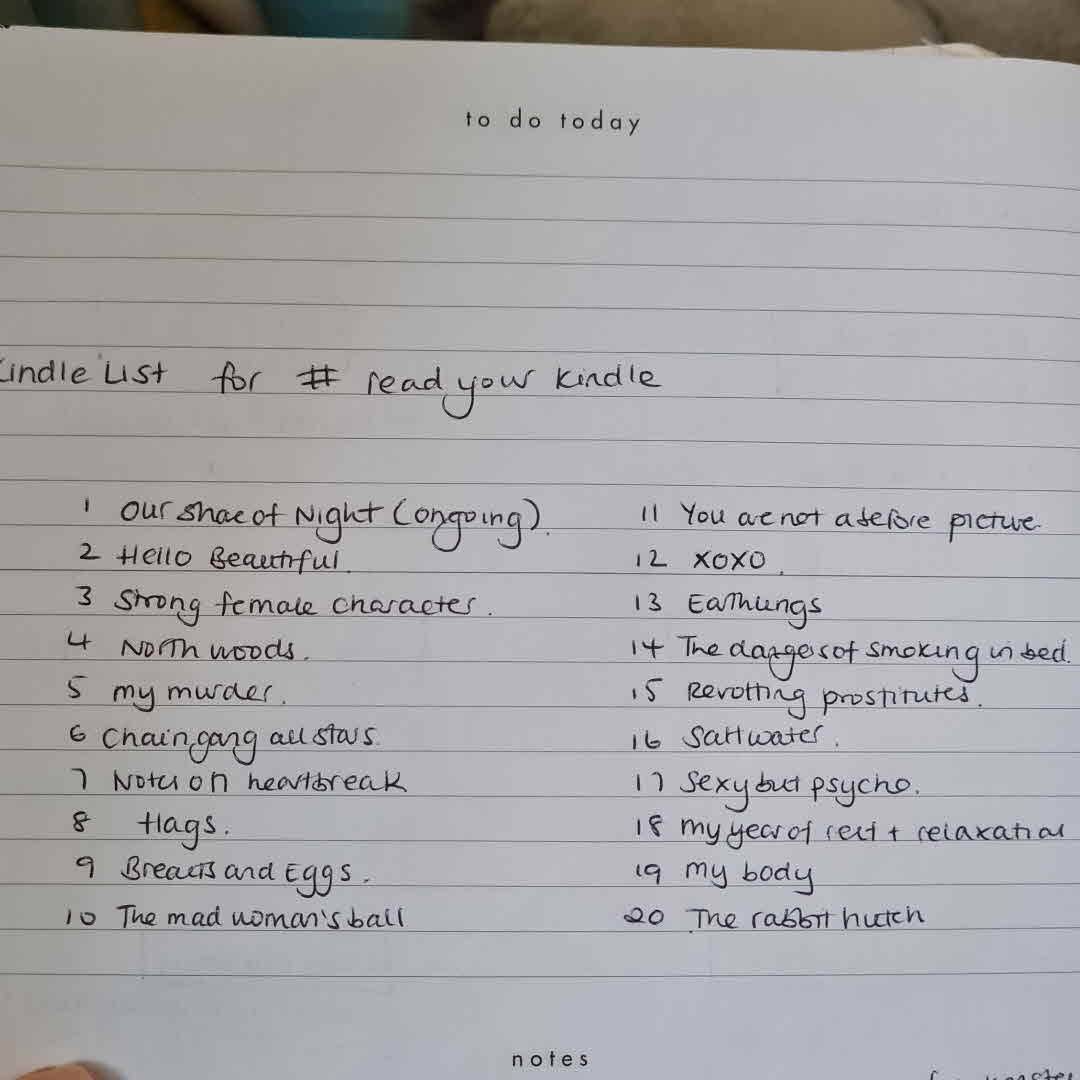 to do today
Kindle List for # read your kindle
1 Our Shae of Night (ongoing).
2 Hello Beautiful.
3 Strong female character.
4 North woods.
5 my murder.
6 Chain gang all stars.
7 Notes on heartbreak
8 Hags.
9 Breasts and Eggs.
10 The mad woman's ball
11 You are not a before picture.
12 XOXO.
13 Earthlings
14 The dangers of smoking in bed.
15 Revolting prostitutes.
16 Saltwater.
17 Sexy but psycho.
18 my year of rest + relaxation
19 my body
20 The rabbit hutch
notes